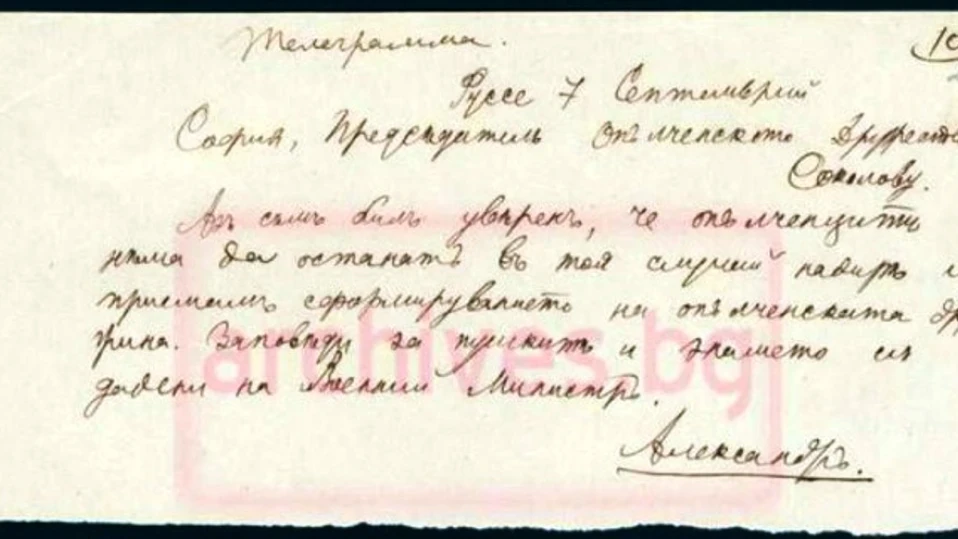 Телеграмма.
10
Руссе 7 Септемврий
София, Председатель Опълченското Дружеств
Соколову.
Азъ съмъ билъ увѣренъ, че опълченцитѣ
нѣма да останатъ въ тоя случай надирѣ и
приемамъ сформируванието на опълченската др
жина. Заповѣди за пушкитѣ и знамето съ
дадени на Военния Министръ.
Александръ.
archives.bg